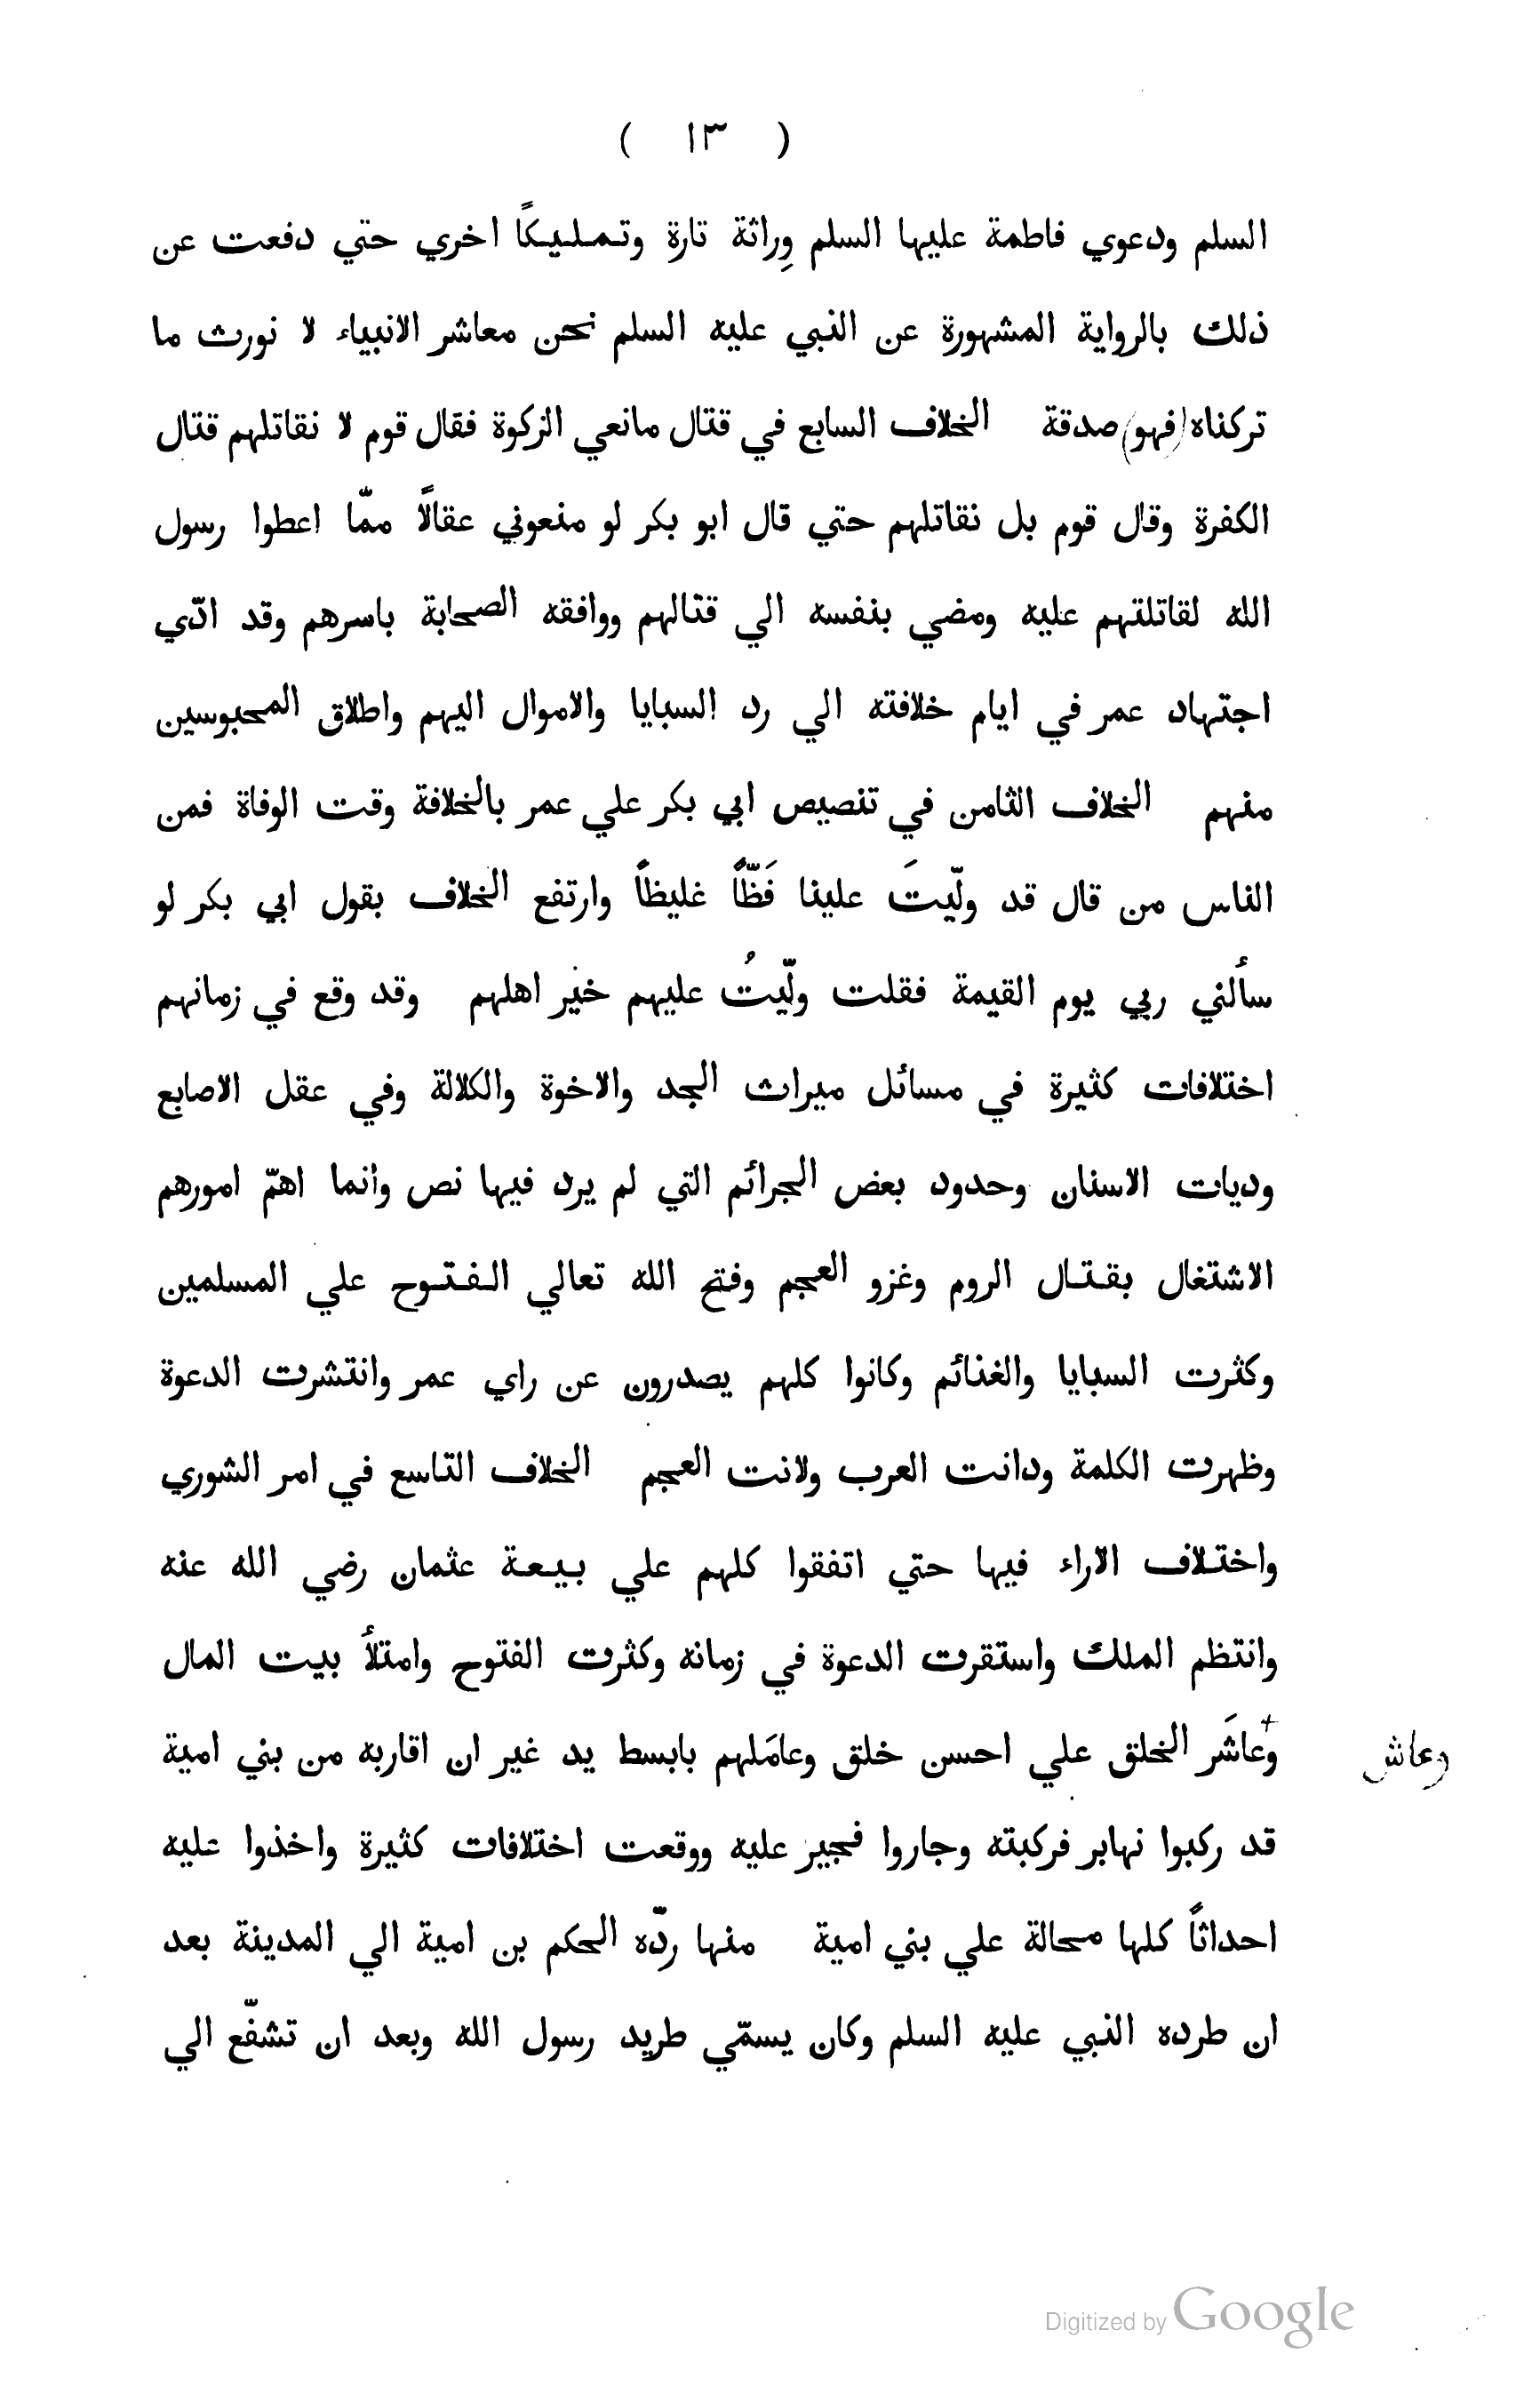 ( ١٣ )
السلم ودعوي فاطمة عليها السلم وِراثة تارة وتمليكًا اخري حتي دفعت عن
ذلك بالرواية المشهورة عن النبي عليه السلم نحن معاشر الانبياء لا نورث ما
تركناه (فهو) صدقة الخلاف السابع في قتال مانعي الزكوة فقال قوم لا نقاتلهم قتال
الكفرة وقال قوم بل نقاتلهم حتي قال ابو بكر لو منعوني عقالًا ممّا اعطوا رسول
الله لقاتلتهم عليه ومضي بنفسه الي قتالهم ووافقه الصحابة باسرهم وقد ادّي
اجتهاد عمر في ايام خلافته الي رد السبايا والاموال اليهم واطلاق المحبوسين
منهم الخلاف الثامن في تنصيص ابي بكر علي عمر بالخلافة وقت الوفاة فمن
الناس من قال قد ولّيتَ علينا فَظّاً غليظاً وارتفع الخلاف بقول ابي بكر لو
سألني ربي يوم القيمة فقلت ولّيتُ عليهم خير اهلهم وقد وقع في زمانهم
اختلافات كثيرة في مسائل ميراث الجد والاخوة والكلالة وفي عقل الاصابع
وديات الاسنان وحدود بعض الجرائم التي لم يرد فيها نص وانما اهمّ امورهم
الاشتغال بقتال الروم وغزو العجم وفتح الله تعالي الفتوح علي المسلمين
وكثرت السبايا والغنائم وكانوا كلهم يصدرون عن راي عمر وانتشرت الدعوة
وظهرت الكلمة ودانت العرب ولانت العجم الخلاف التاسع في امر الشوري
واختلاف الاراء فيها حتي اتفقوا كلهم علي بيعة عثمان رضي الله عنه
وانتظم الملك واستقرت الدعوة في زمانه وكثرت الفتوح وامتلأ بيت المال
وعاشَر الخلق علي احسن خلق وعامَلهم بابسط يد غير ان اقاربه من بني امية
وعاش
قد ركبوا نهابر فركبته وجاروا فجير عليه ووقعت اختلافات كثيرة واخذوا عليه
احداثاً كلها محالة علي بني امية منها ردّه الحكم بن امية الي المدينة بعد
ان طرده النبي عليه السلم وكان يسمّي طريد رسول الله وبعد ان تشفّع الي
Digitized by Google